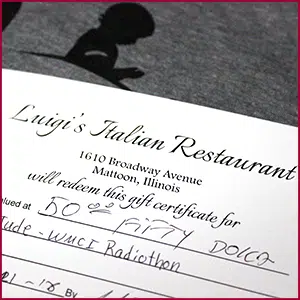 Luigi's Italian Restaurant
1610 Broadway Avenue
Mattoon, Illinois
will redeem this gift certificate for
valued at 50 00 FIFTY DOLCR
Jude - WMCI Radiothon
-18 By